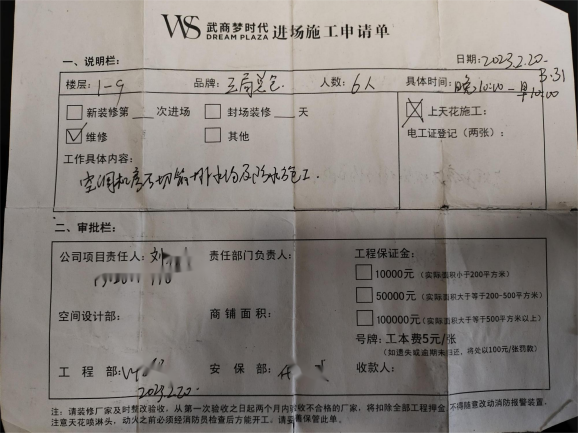 WS 武商梦时代 DREAM PLAZA 进场施工申请单
一、说明栏：
日期：2023.2.20-
3.31
楼层：1-9 品牌：三局总包 人数：6人 具体时间：晚10:00-早10:00
新装修第 次进场 封场装修 天 上天花施工：
维修 其他 电工证登记（两张）：
工作具体内容：
空调机房 施工.
二、审批栏：
公司项目责任人：刘 责任部门负责人： 工程保证金：
10000元（实际面积小于200平方米）
50000元（实际面积大于等于200-500平方米）
空间设计部： 商铺面积： 100000元（实际面积大于等于500平方米以上）
号牌：工本费5元/张
（如遗失或逾期未归还，将处以100元/张罚款）
工程部： 安保部： 收款人：
2023.2.20.
注：请装修厂家及时整改验收，从第一次验收之日起两个月内验收不合格的厂家，将扣除全部工程押金 不得随意改动消防报警装置，
注意天花喷淋头，动火之前必须经消防员检查后方能开工。请妥善保管此单。